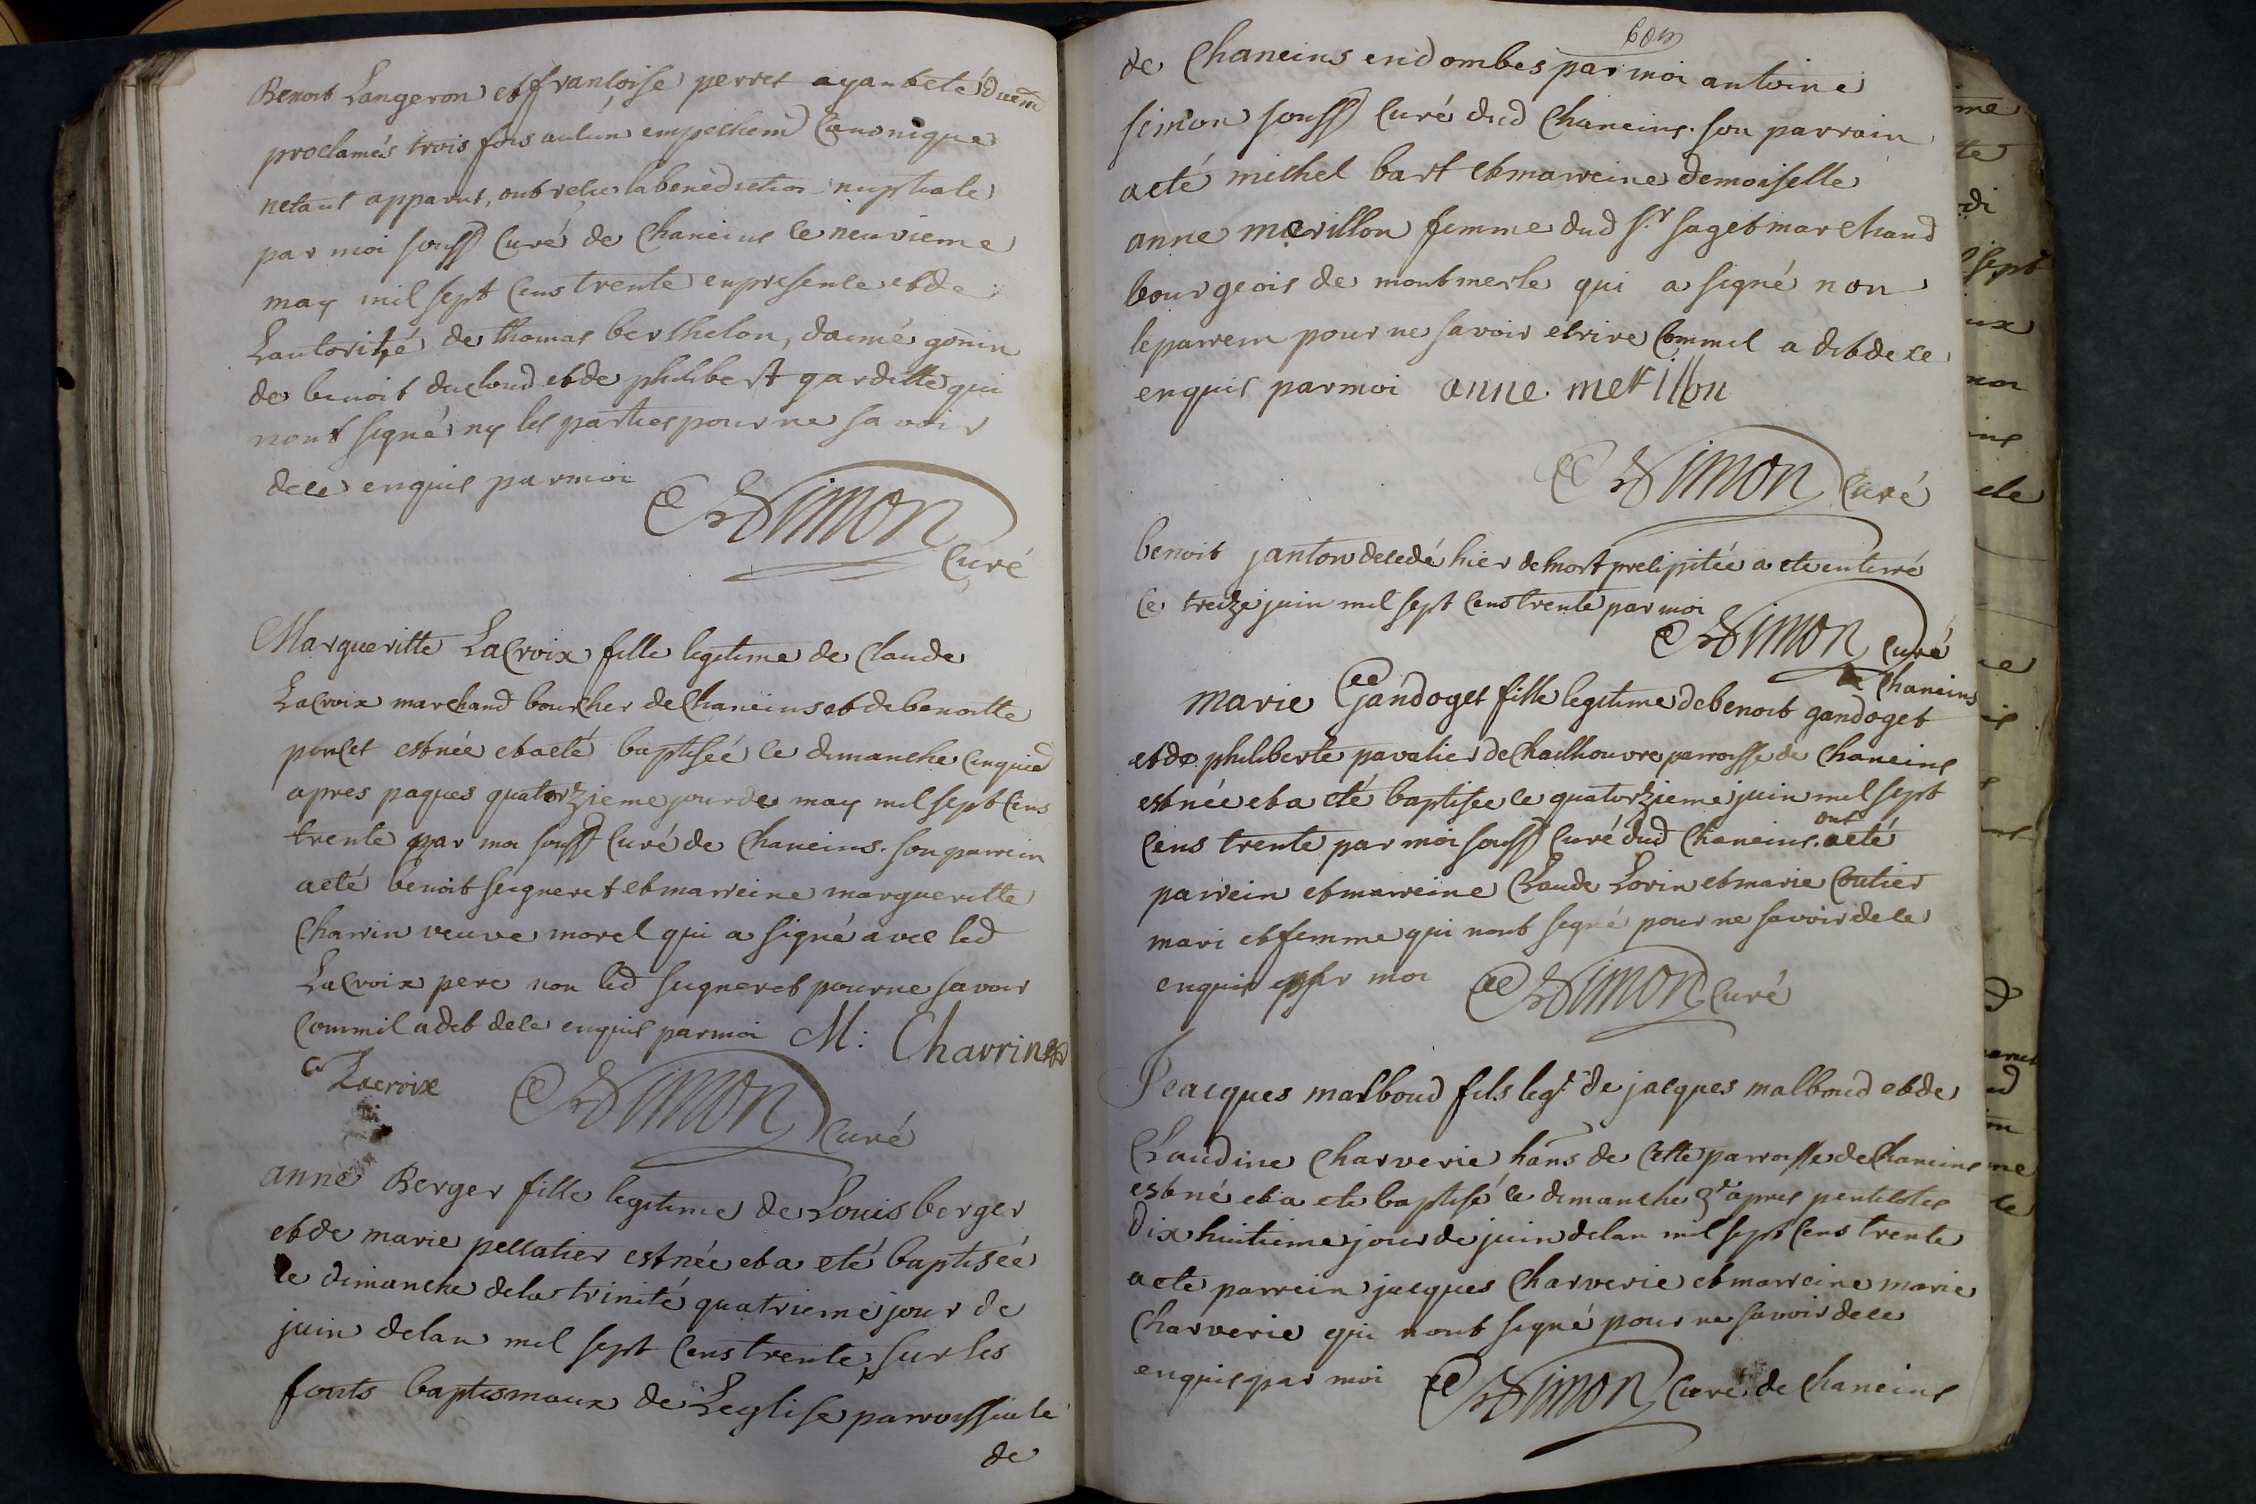 Benoit Langeron et françoise perret ayant eté duem̃
proclamés trois fois aucun empechem̃ Canonique
netant apparut, ont reçu la benediction nuptiale
par moi souss Curé de Chaneins ce neuvieme
may mil sept Cens trente en presence et de
Lautorité de thomas berthelon, daimé gonin
de benoit ducloud et de philibert gardette qui
nont signé ny les parties pour ne savoir
dece enquis par moi
Simon
Curé
Margueritte LaCroix fille legitime de Claude
LaCroix marchand boucher de Chaneins et de benoitte
poncet est née et a eté baptiseé le dimanche Cinquie
apres paques quatorzieme jour de may mil sept Cens
trente par moi souss Curé de Chaneins. son parrein
a eté benoit seigneret et marreine margueritte
Charrin veuve morel qui a signé avec led
LaCroix pere non led seigneret pour ne savoir
Comme il a dit dece enquis par moi M: Charrin
C Lacroix
Simon Curé
anne Berger fille legitime de Louis berger
et de marie pellatier est née et a eté baptiseé
le dimanche dela trinité quatrieme jour de
juin delan mil sept Cens trente, sur les
fonts baptismaux de Leglise parroissiale
de
de Chaneins en dombes par moi antoine
simon souss Curé dud Chaneins. son parrain
a eté michel bart et marreine demoiselle
anne merillon femme dud sr. saget marchand
bourgeois de montmerle qui a signé non
le parrein pour ne savoir ecrire Comme il a dit de ce
enquis par moi anne merillon
Simon Curé
benoit janton decedé hier de mort precipitée a ete enterré
Ce treize juin mil sept Cens trente par moi
Simon Curé
Chaneins
marie Gandoget fille legitime de benoit gandoget
et de philiberte pavalier de Chailhouvre parroisse de Chaneins
est née et a eté baptisée le quatorzieme juin mil sept
Cens trente par moi souss Curé dud Chaneins. ont eté
parrein et marreine Claude Lorin et marie Coutier
mari et femme qui nont signé pour ne savoir dece
enquis par moi Simon Curé
Jeacques malboud fils legt. de jacques malboud et de
Claudine Charverie hans de Cette parroisse de Chaneins
est né et a ete baptisé le dimanche 3e apres pentecotes
dix huitieme jour de juin delan mil sept Cens trente
a ete parrein jacques Charverie et marreine marie
Charverie qui nont signé pour ne savoir dece
enquis par moi Simon Curé de Chaneins